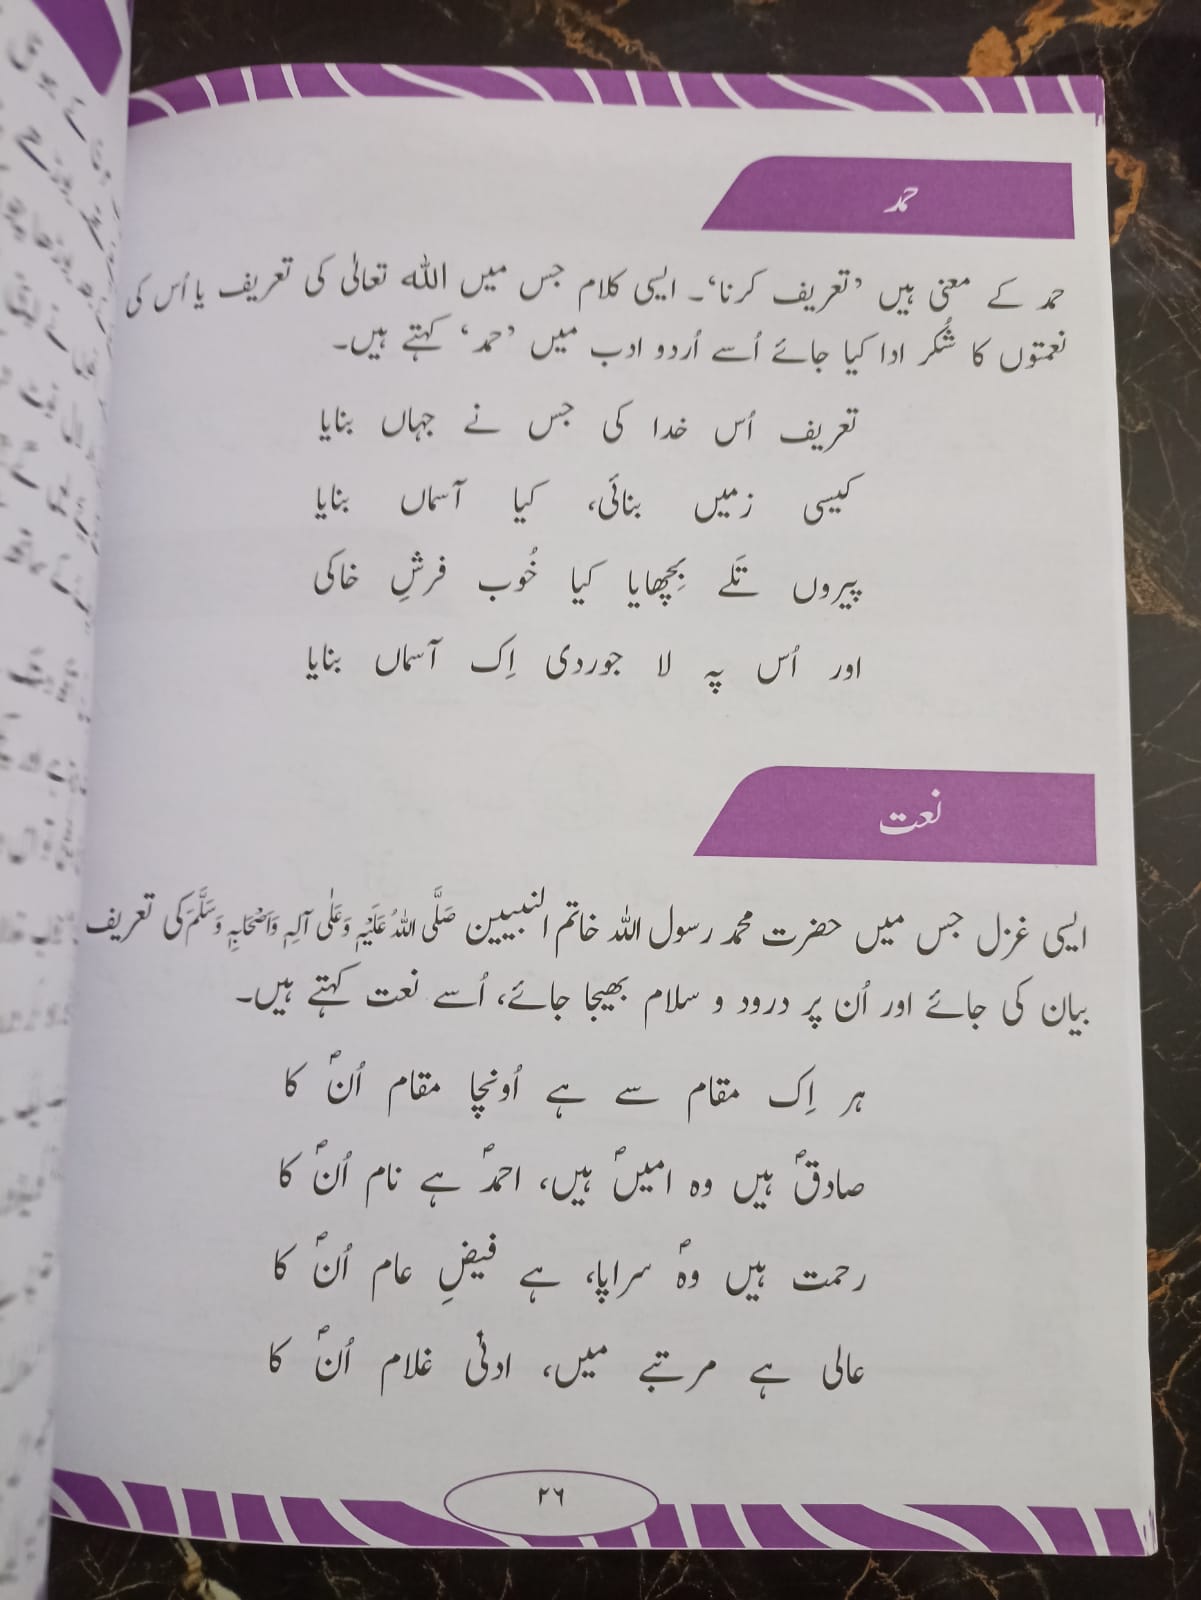 حمد
حمد کے معنی ہیں ’تعریف کرنا‘۔ ایسی کلام جس میں اللہ تعالیٰ کی تعریف یا اُس کی
نعمتوں کا شُکر ادا کیا جائے اُسے اُردو ادب میں ’حمد‘ کہتے ہیں۔
تعریف اُس خدا کی جس نے جہاں بنایا
کیسی زمیں بنائی، کیا آسماں بنایا
پیروں تَلے بِچھایا کیا خُوب فرشِ خاکی
اور اُس پہ لا جوردی اِک آسماں بنایا
نعت
ایسی غزل جس میں حضرت محمد رسول اللہ خاتم النبیین صَلَّی اللہُ عَلَیْہِ وَعَلٰی آلِہٖ وَاَصْحَابِہٖ وَسَلَّمَ کی تعریف
بیان کی جائے اور اُن پر درود و سلام بھیجا جائے، اُسے نعت کہتے ہیں۔
ہر اِک مقام سے ہے اُونچا مقام اُنؐ کا
صادقؐ ہیں وہ امیںؐ ہیں، احمدؐ ہے نام اُنؐ کا
رحمت ہیں وہؐ سراپا، ہے فیضِ عام اُنؐ کا
عالی ہے مرتبے میں، ادنیٰ غلام اُنؐ کا
۲۶